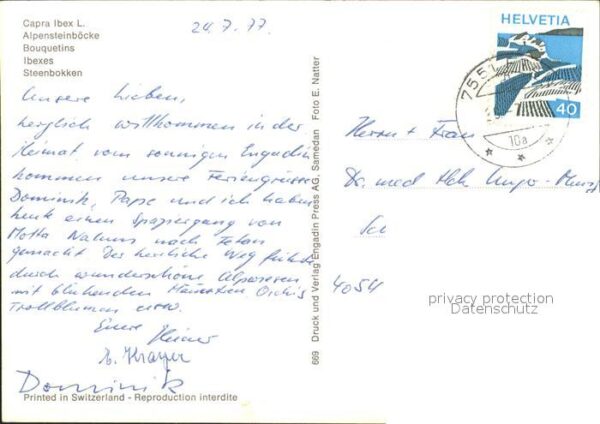 Capra Ibex L.
Alpensteinböcke
Bouquetins
Ibexes
Steenbokken
24.7.77
Unsere Lieben,
herzlich willkommen in der
Heimat. Vom sonnigen Engadin
kommen unsere Feriengrüsse
Dominik, Papa und ich haben
heute einen Spaziergang von
Motta Naluns nach Fetan
gemacht. Der herrliche Weg führte
durch wunderschöne Alpwiesen
mit blühenden Orchis
Trollblumen usw.
Eure
Dominik
Printed in Switzerland - Reproduction interdite
669 Druck und Verlag Engadin Press AG, Samedan Foto E. Natter
HELVETIA
40
755
10a
Herrn + Frau
Dr. med
4054
privacy protection
Datenschutz